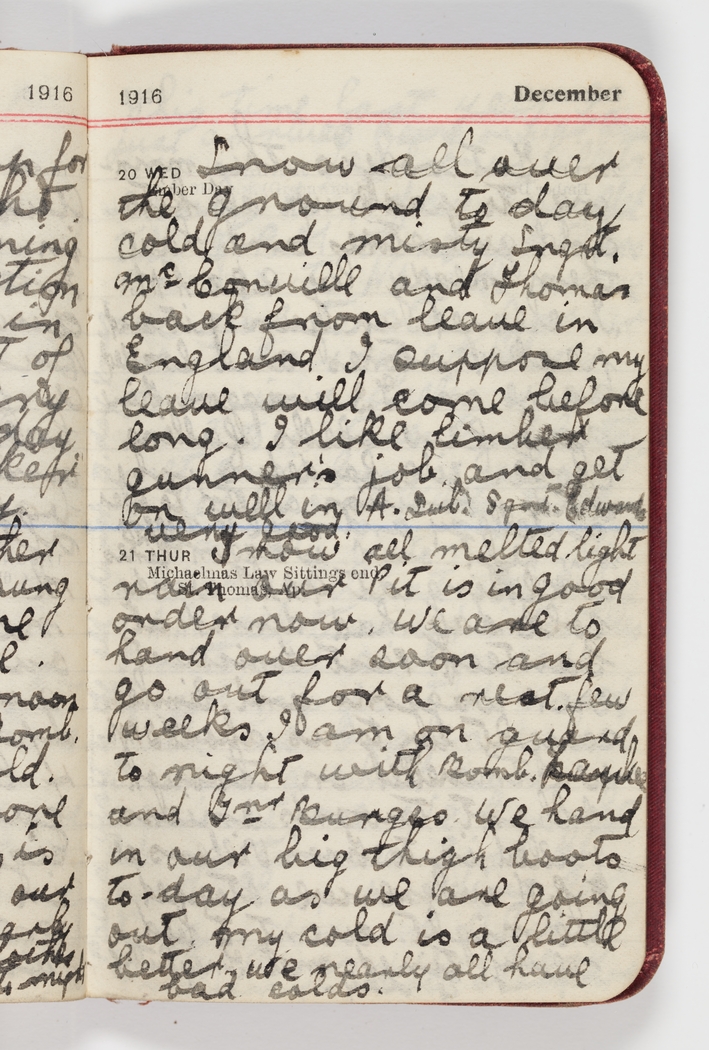 1916
up for
ning
tion
in
T of
day
her
ne
noon
Bomb.
ld.
ore
is
our
to night
1916 December
20 WED Snow all over
Ember Day
the ground to day
cold and misty Sergt.
McConville and Thomas
back from leave in
England I suppose my
leave will come before
long. I like limber
gunner's job and get
on well in A. Sub. Sgnt. Edwards
very good.
21 THUR Snow all melted light
Michaelmas Law Sittings end
St. Thomas, Ap.
rain our Pit is in good
order now. We are to
hand over soon and
go out for a rest. few
weeks I am on guard
to night with Bomb.
and Gnr Burges. We hand
in our big thigh boots
to-day as we are going
out. my cold is a little
better, we nearly all have
bad colds.